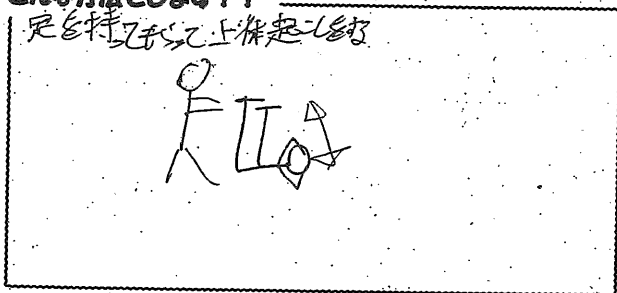 足を持ってもらって上体起こしをする